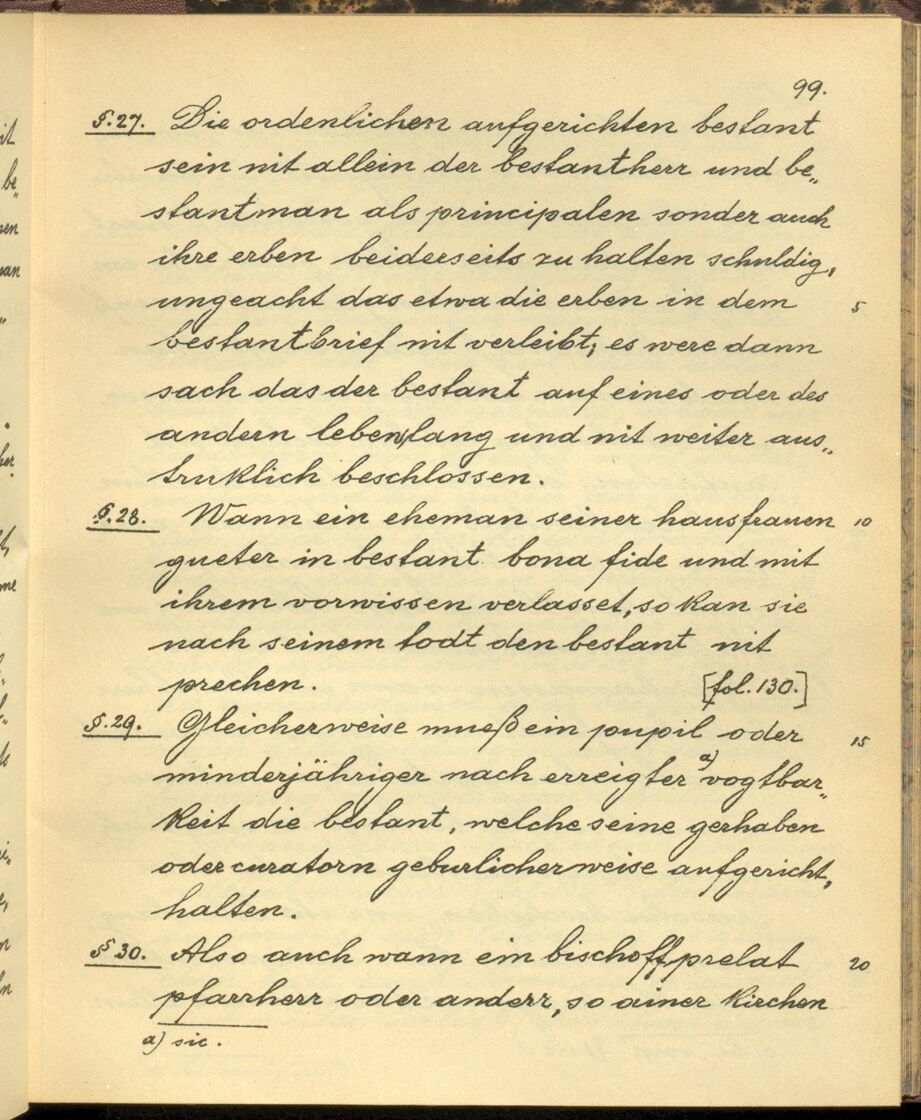 99.
§.27. Die ordenlichen aufgerichten bestant
sein nit allein der bestantherr und be„
stantman als principalen sonder auch
ihre erben beiderseits zu halten schuldig,
ungeacht das etwa die erben in dem 5
bestantbrief nit verleibt; es were dann
sach das der bestant auf eines oder des
andern lebenslang und nit weiter aus„
truklich beschlossen.
§.28. Wann ein eheman seiner hausfrauen 10
gueter in bestant bona fide und mit
ihrem vorwissen verlasset, so kan sie
nach seinem todt den bestant nit
prechen. [fol. 130.]
§.29. Gleicherweise mueß ein pupil oder 15
minderjähriger nach erreigter a) vogtbar„
keit die bestant, welche seine gerhaben
oder curatorn geburlicherweise aufgericht,
halten.
§ 30. Also auch wann ein bischoff prelat 20
pfarrherr oder anderr, so ainer kirchen
a) sic.